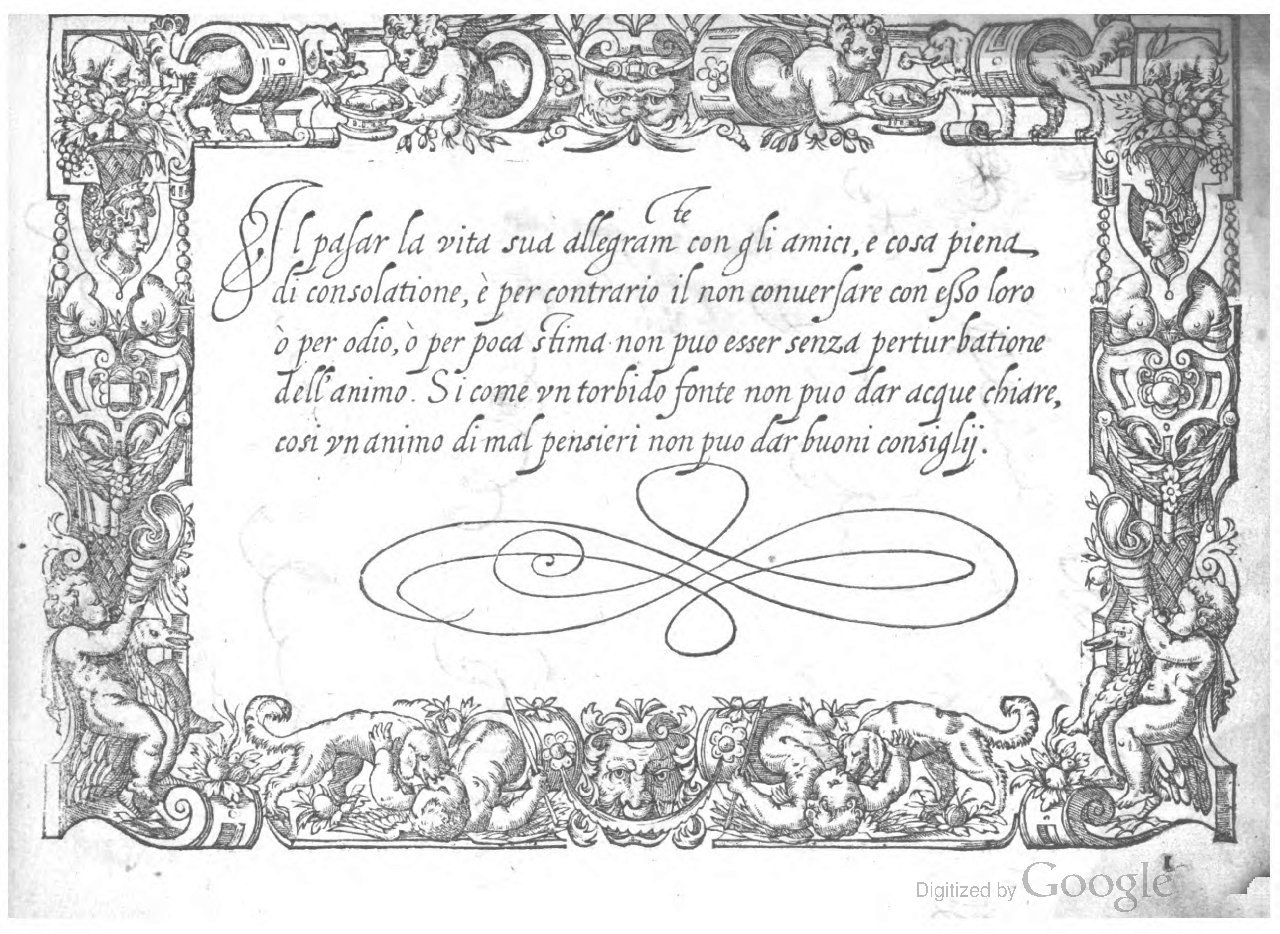 Il paſsar la vita sua allegram^te con gli amici, e cosa piena
di consolatione, è per contrario il non conuerſare con eſso loro
ò per odio, ò per poca stima non puo esser senza perturbatione
dell'animo. Si come vn torbido fonte non puo dar acque chiare,
cosi vn animo di mal pensieri non puo dar buoni consiglij.
I
Digitized by Google